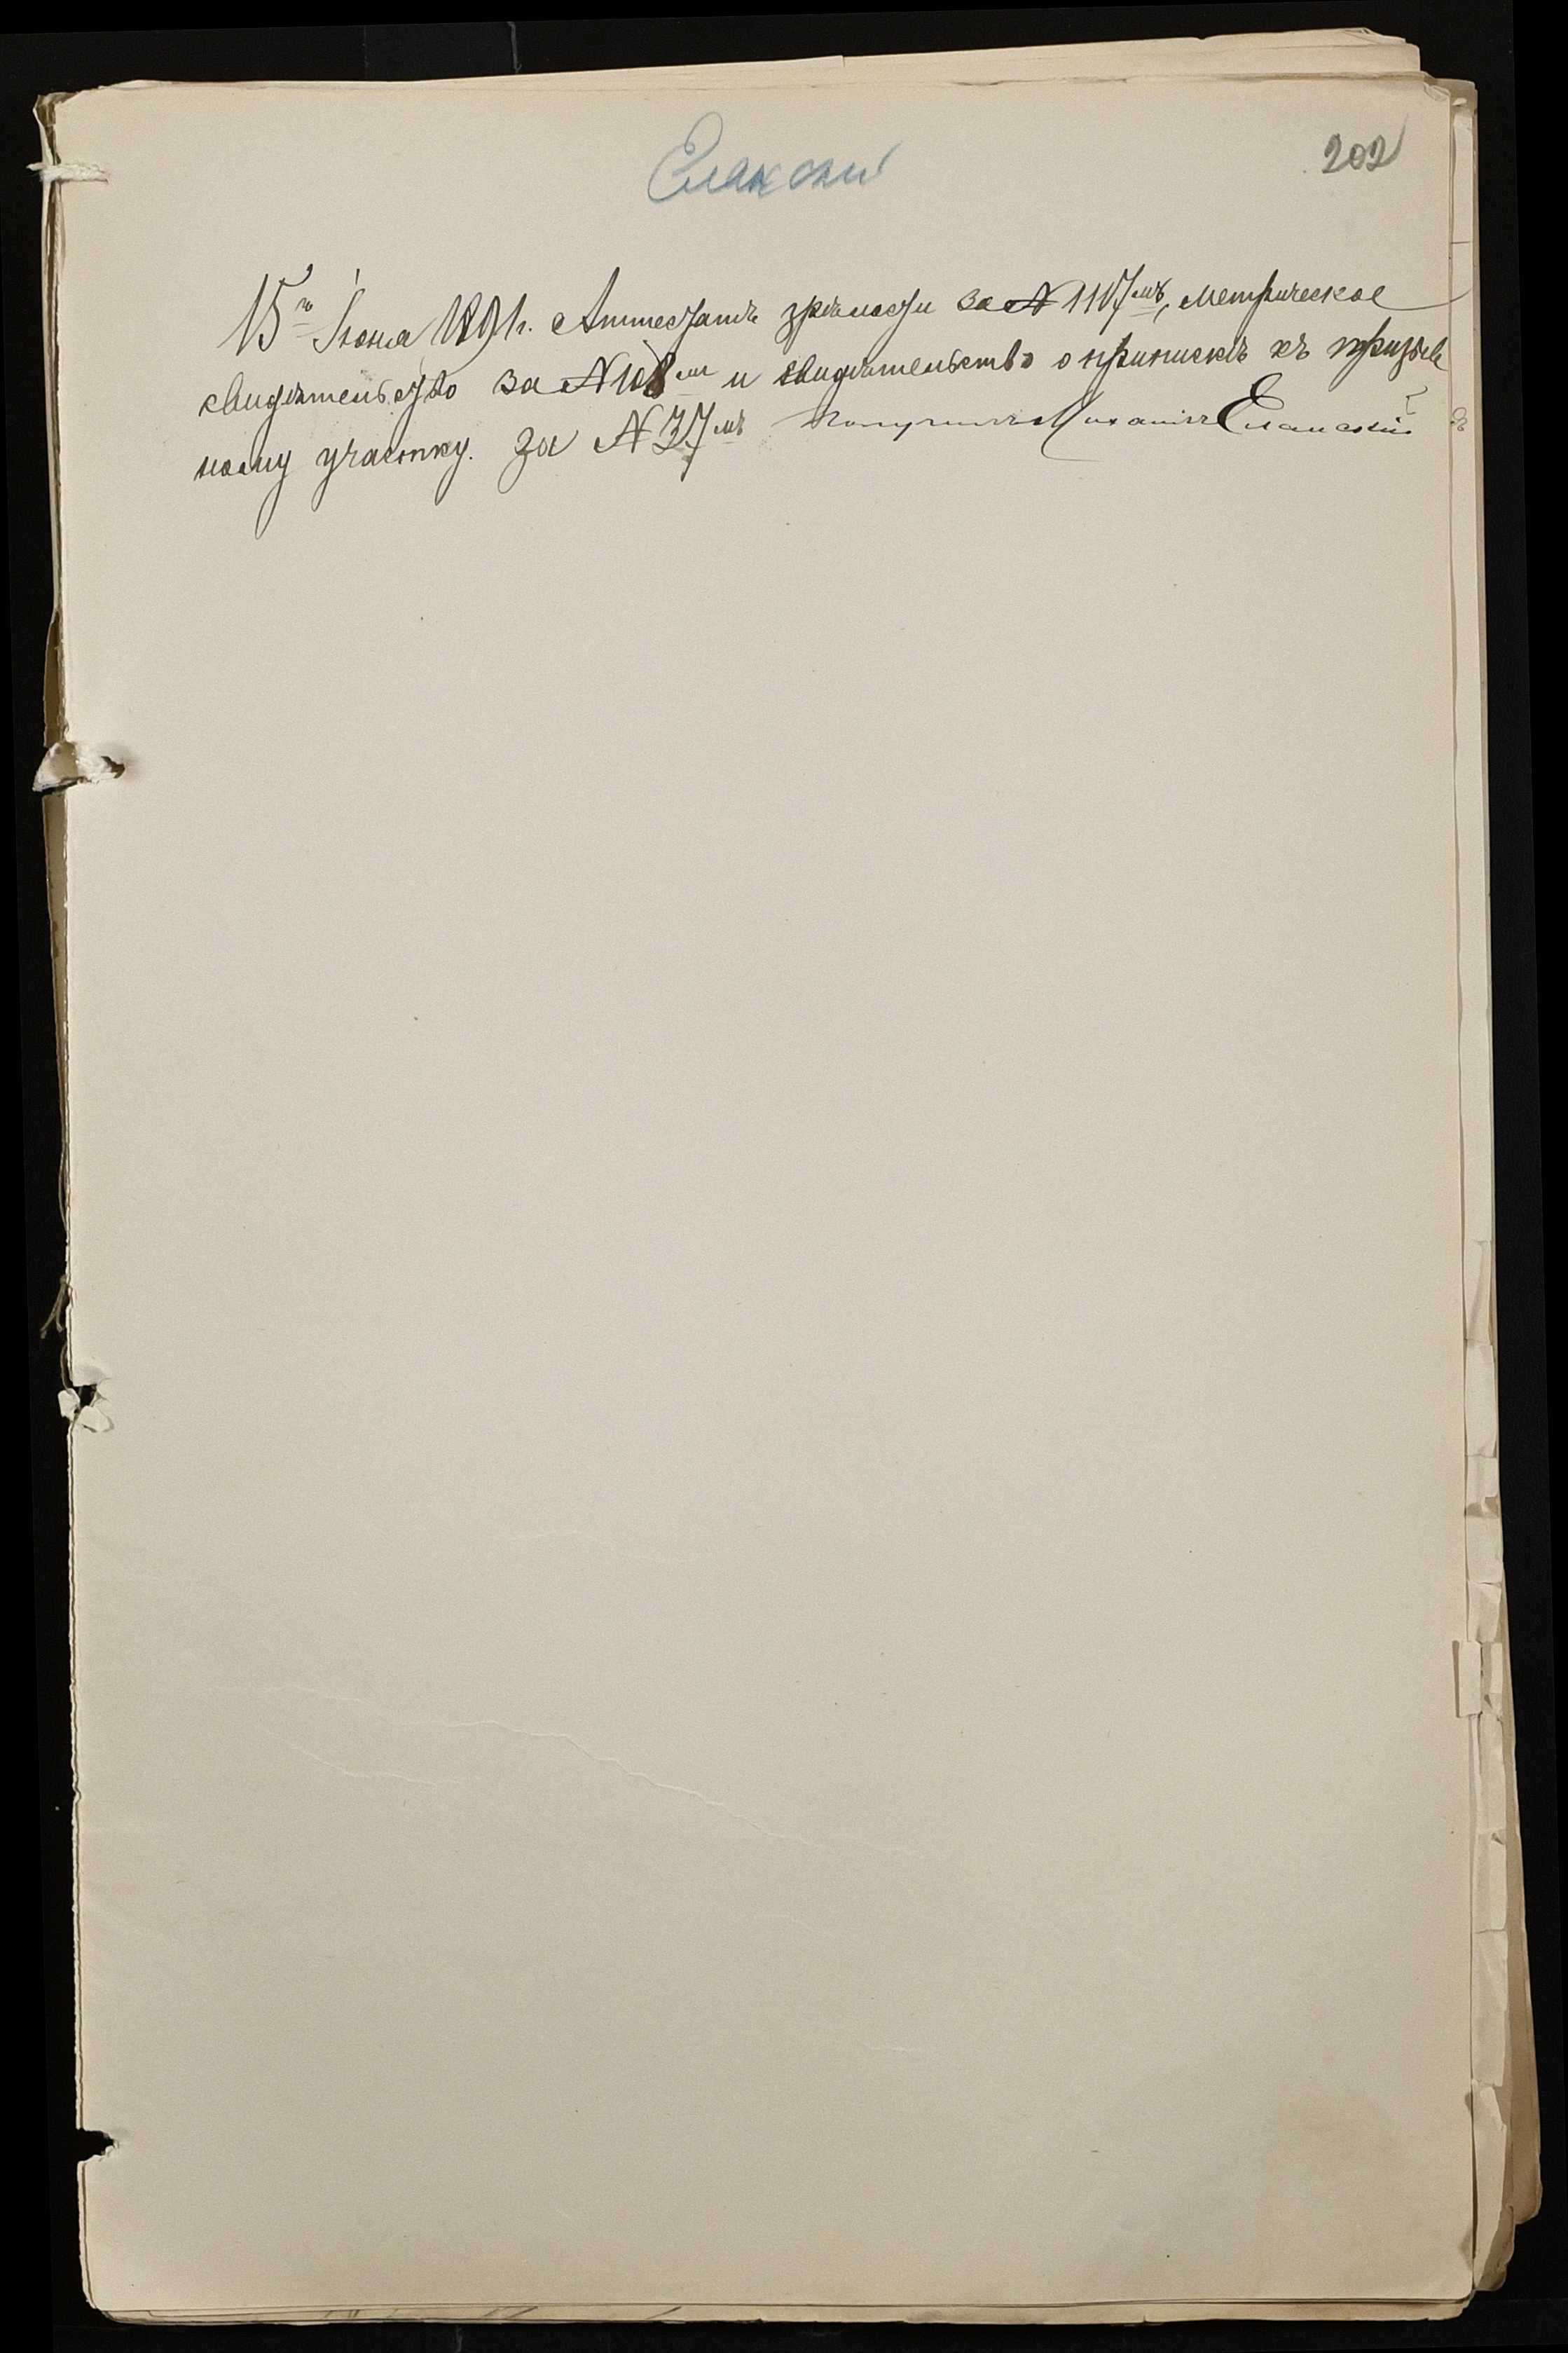 Еланский
202
15го Іюня 1891г. Аттестатъ зрѣлости за № 1107мъ, метрическое
свидѣтельство за № 108мъ и свидѣтельство о припискѣ къ призыв
ному участку. за № 37мъ получилъ Михаилъ Еланский